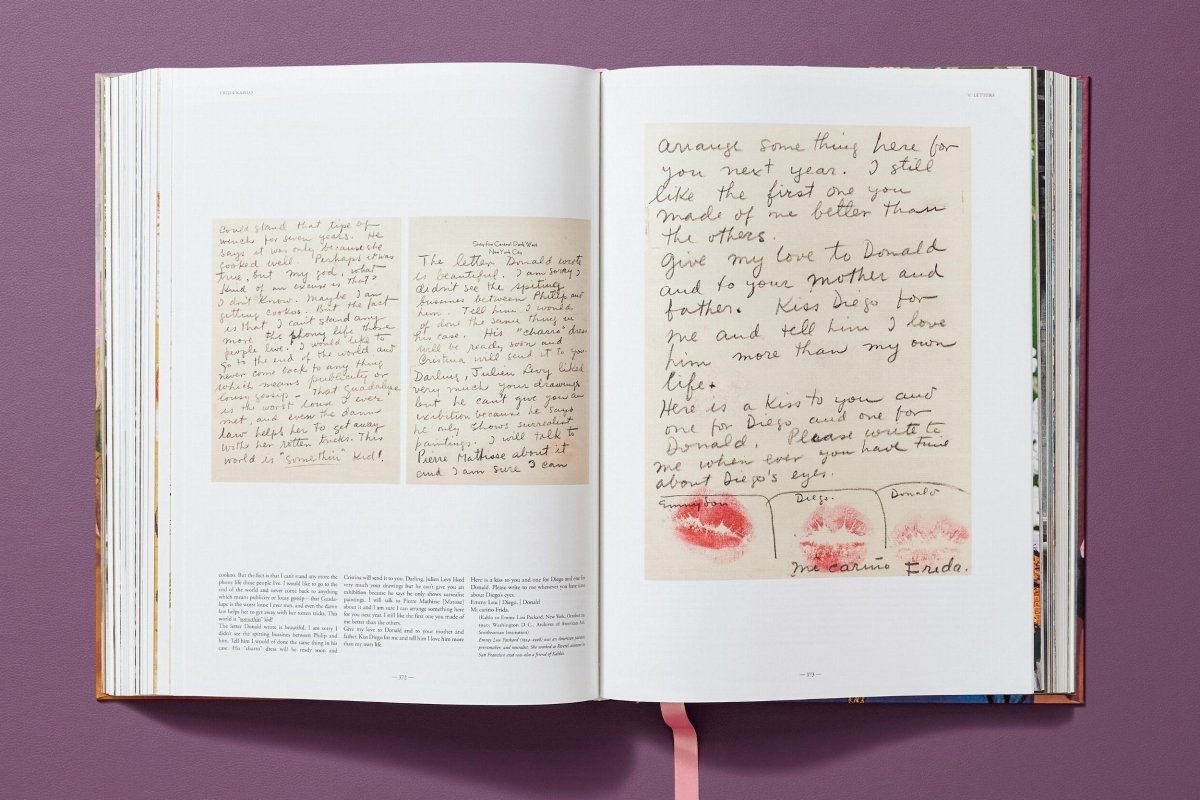 FRIDA KAHLO
could stand that tipe of
wench for seven years. He
says it was only because she
cooked well. Perhaps it was
true, but my god, what
kind of an excuse is that?
I don't know. Maybe I am
getting cookoo. But the fact
is that I can't stand any
more the phony life those
people live. I would like to
go to the end of the world and
never come back to any thing
which means publicity or
lousy gossip – That Guadalupe
is the worst louse I ever
met, and even the damn
law helps her to get away
with her rotten tricks. This
world is "somethin" kid!
Sixty five Central Park West
New York City
The letter Donald wrote
is beautiful. I am sorry I
didn't see the spitting
bussines between Philip and
him. Tell him I would
of done the same thing in
his case. His "charro" dress
will be ready soon and
Cristina will send it to you.
Darling, Julien Levy liked
very much your drawings
but he can't give you an
exibition because he says
he only shows surrealist
paintings. I will talk to
Pierre Mathisse about it
and I am sure I can
cookoo. But the fact is that I can't stand any more the
phony life those people live. I would like to go to the
end of the world and never come back to anything
which means publicity or lousy gossip – that Guada-
lupe is the worst louse I ever met, and even the damn
law helps her to get away with her rotten tricks. This
world is "somethin" kid!
The letter Donald wrote is beautiful. I am sorry I
didn't see the spitting bussines between Philip and
him. Tell him I would of done the same thing in his
case. His "charro" dress will be ready soon and
Cristina will send it to you. Darling, Julien Levy liked
very much your drawings but he can't give you an
exhibition because he says he only shows surrealist
paintings. I will talk to Pierre Mathisse [Matisse]
about it and I am sure I can arrange something here
for you next year. I still like the first one you made of
me better than the others.
Give my love to Donald and to your mother and
father. Kiss Diego for me and tell him I love him more
than my own life.
Here is a kiss to you and one for Diego and one for
Donald. Please write to me whenever you have time
about Diego's eyes.
Emmy Lou | Diego. | Donald
Mi cariño Frida.
(Kahlo to Emmy Lou Packard, New York, October 24,
1940: Washington D. C., Archives of American Art,
Smithsonian Institution)
Emmy Lou Packard (1914–1998) was an American painter,
printmaker, and muralist. She worked as Rivera's assistant in
San Francisco and was also a friend of Kahlo's.
— 372 —
V. LETTERS
arrange some thing here for
you next year. I still
like the first one you
made of me better than
the others.
Give my love to Donald
and to your mother and
father. Kiss Diego for
me and tell him I love
him more than my own
life.
Here is a kiss to you and
one for Diego and one for
Donald. Please write to
me when ever you have time
about Diego's eyes.
Emmylou
Diego.
Donald
Mi cariño Frida.
— 373 —